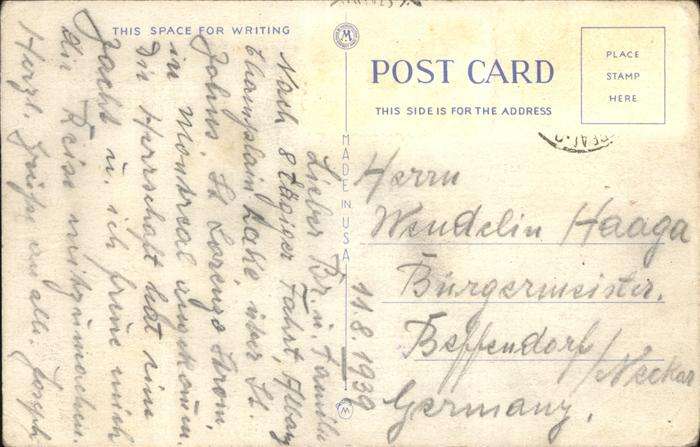 THIS SPACE FOR WRITING
POST CARD
THIS SIDE IS FOR THE ADDRESS
PLACE
STAMP
HERE
MADE IN USA
11.8.1939
Lieber Br. u. Famili
Nach 8 tägiger Fahrt, Albany
Champlain Lake, über St.
Johns St. Lorenzo Strom,
in Montreal angekomm.
Die Herrschaft hat eine
Jacht u. ich freue mich
die Reise mitzumachen.
Herzl. Grüße an alle. Joseph
Herrn
Wendelin Haaga
Bürgermeister,
Beffendorf
/Neckar
Germany,